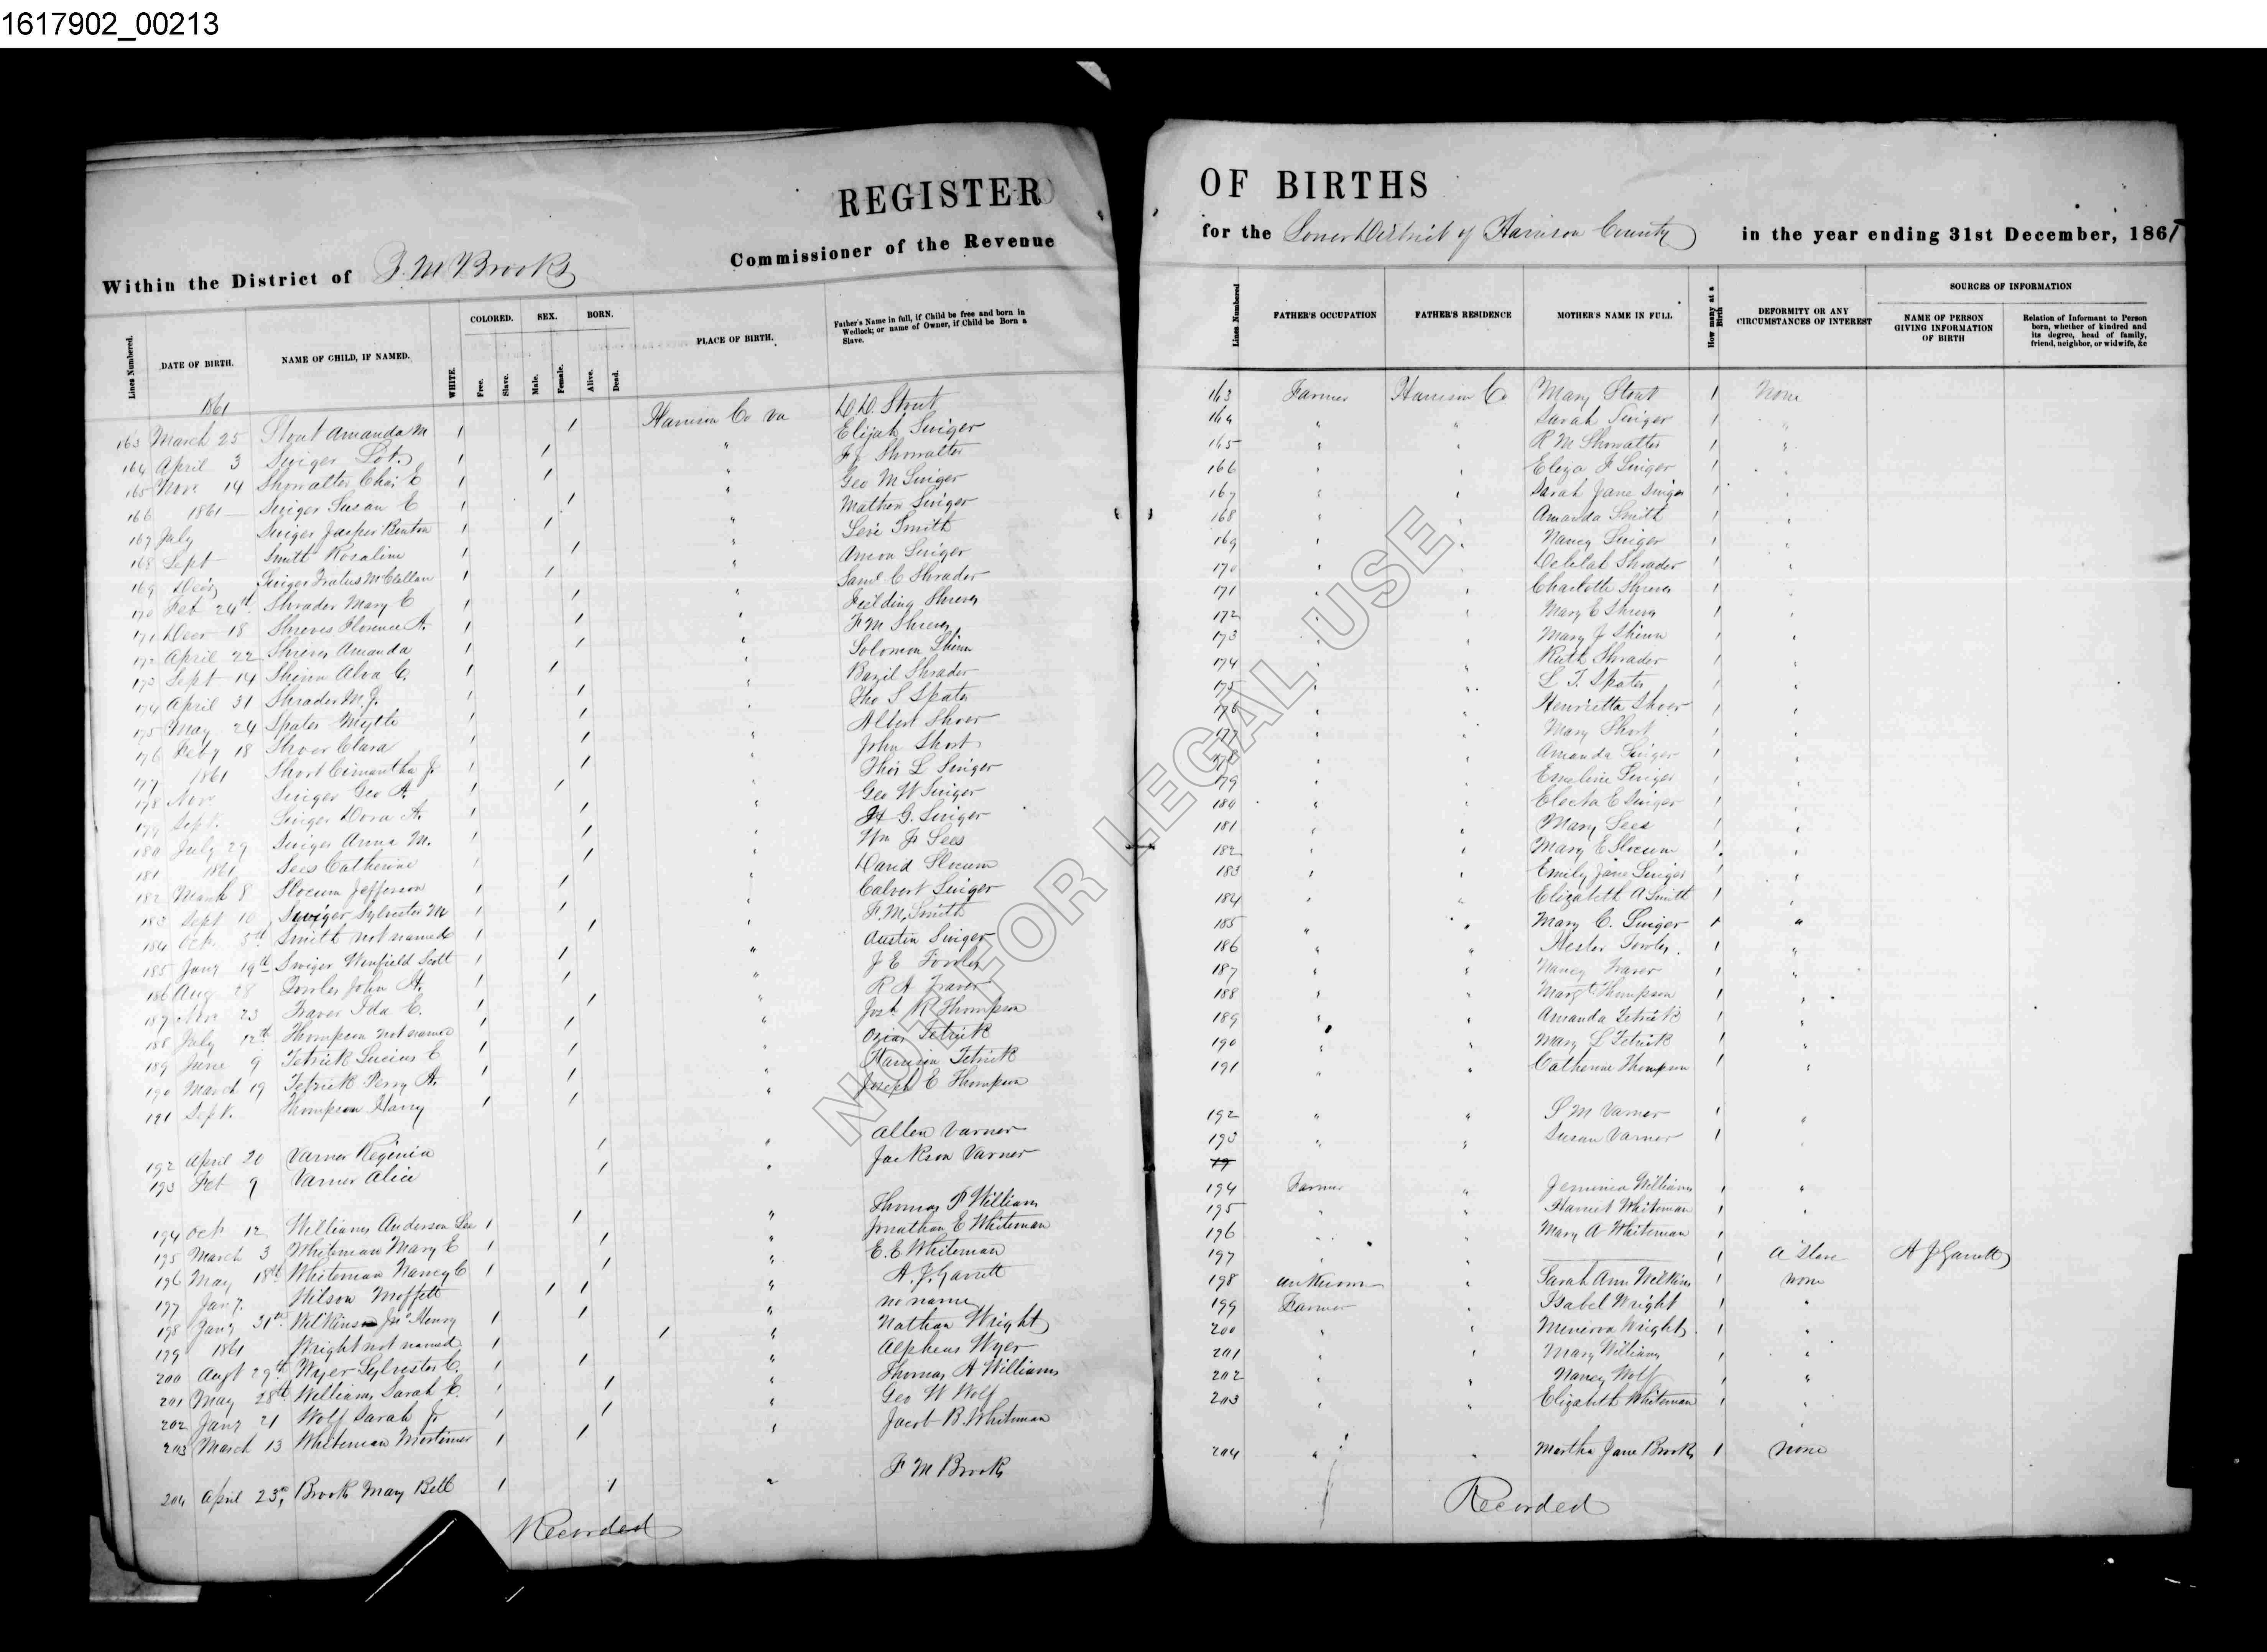 1617902_00213
REGISTER
Within the District of F. M Brooks Commissioner of the Revenue
Lines Numbered. DATE OF BIRTH. NAME OF CHILD, IF NAMED. WHITE. COLORED. Free. Slave. SEX. Male. Female. BORN. Alive. Dead. PLACE OF BIRTH. Father's Name in full, if Child be free and born in Wedlock; or name of Owner, if Child be Born a Slave.
1861
163 March 25 Stout Amanda M 1 1 Harrison Co Va D. D. Stout
164 April 3 Swiger Lot. 1 1 " Elijah Swiger
165 Nov 14 Showalter Chas E 1 1 " Showalter
166 1861 Swiger Susan E 1 1 " Geo M Swiger
167 July Swiger Jasper Benton 1 1 " Mathew Swiger
168 Sept Smith Rosaline 1 1 " Levi Smith
169 Swiger McClellan 1 1 " Swiger
170 Feb 24th Shrader Mary E 1 1 " Saml C Shrader
171 Decr 18 Shreves Florence A. 1 1 " Feilding Shreves
172 April 22 Shreves Amanda 1 1 " F M Shreves
173 Sept 14 Shinn Alva C. 1 1 " Solomon Shinn
174 April 31 Shrader M. J. 1 1 " Bazil Shrader
175 May 24 Spates Myrtle 1 1 " Tho S Spates
176 Feby 18 Shoer Clara 1 1 " Albert Shoer
177 1861 Short Cimantha J. 1 1 " John Short
178 Nov Swiger Geo A. 1 1 " Thos L Swiger
179 Sept. Swiger Dora A. 1 1 " Geo W Swiger
180 July 29 Swiger Anna M. 1 1 " G. Swiger
181 1861 Sees Catherine 1 1 " Wm J Sees
182 March 8 Slocum Jefferson 1 1 " David Slocum
183 Sept 10 Swiger Sylvester M 1 1 " Calvert Swiger
184 Oct. 5th Smith not named 1 1 " F. M. Smith
185 Jany 19th Swiger Winfield Scott 1 1 " Austin Swiger
186 Aug 28 Fowler John A. 1 1 " J E Fowler
187 Nov 23 Traver Ida C. 1 1 " R A Traver
188 July 12th Thompson not named 1 1 " R Thompson
189 June 9 Tetrick Lucius E 1 1 " Ozias Tetrick
190 March 19 Tetrick Perry A. 1 1 " Harrison Tetrick
191 Sept. Thompson Harry 1 1 " Joseph E Thompson
192 April 20 Varner Reginia 1 " Allen Varner
193 Feb 9 Varner Alice 1 " Jackson Varner
194 Oct 12 Williams Anderson Lee 1 1 " Thomas F Williams
195 March 3 Whiteman Mary E 1 1 " Jonathan E Whiteman
196 May 18th Whiteman Nancy C 1 1 " E. E. Whiteman
197 Jany. Wilson Moffett 1 1 " A. J. Garrett
198 Jany 31st Wilkinson Jno Henry 1 1 " no name
199 1861 Wright not named 1 1 " Nathan Wright
200 Augt 29th Wyer Sylvester C. 1 1 " Alpheus Wyer
201 May 28th Williams Sarah E. 1 1 " Thomas A Williams
202 Jany 21 Wolf Sarah J. 1 1 " Geo W Wolf
203 March 13 Whiteman Mortimer 1 1 " Jacob B. Whiteman
204 April 23rd Brooks Mary Bell 1 1 " F M Brooks
Recorded
OF BIRTHS
for the Lower District of Harrison County in the year ending 31st December, 1861
Lines Numbered FATHER'S OCCUPATION FATHER'S RESIDENCE MOTHER'S NAME IN FULL. How many at a Birth DEFORMITY OR ANY CIRCUMSTANCES OF INTEREST SOURCES OF INFORMATION NAME OF PERSON GIVING INFORMATION OF BIRTH Relation of Informant to Person born, whether of kindred and its degree, head of family, friend, neighbor, or widwife, &c
163 Farmer Harrison Co Mary Stout 1 None
164 " " Sarah Swiger 1 "
165 " " R M Showalter 1 "
166 " " Eliza J Swiger 1 "
167 " " Sarah Jane Swiger 1 "
168 " " Amanda Smith 1 "
169 " " Nancy Swiger 1 "
170 " " Delilah Shrader 1 "
171 " " Charlotte Shreves 1 "
172 " " Mary E Shreves 1 "
173 " " Mary J Shinn 1 "
174 " " Ruth Shrader 1 "
175 " " L T. Spates 1 "
176 " " Henrietta Shoer 1 "
177 " " Mary Short 1 "
178 " " Amanda Swiger 1 "
179 " " Emeline Swiger 1 "
180 " " Electa E Swiger 1 "
181 " " Mary Sees 1 "
182 " " Mary E Slocum 1 "
183 " " Emily Jane Swiger 1 "
184 " " Elizabeth A Smith 1 "
185 " " Mary C. Swiger 1 "
186 " " Hester Fowler. 1 "
187 " " Nancy Traver 1 "
188 " " Margt Thompson 1 "
189 " " Amanda Tetrick 1 "
190 " " Mary L Tetrick 1 "
191 " " Catherine Thompson 1 "
192 " " S M Varner 1 "
193 " " Susan Varner 1 "
19
194 Farmer " Jemima Williams 1 "
195 " " Harriet Whiteman 1 "
196 " " Mary A Whiteman 1 "
197 " " 1 A Slave A J Garrett
198 unknown " Sarah Ann Wilkins 1 none
199 Farmer " Isabel Wright 1 "
200 " " Minerva Wright 1 "
201 " " Mary Williams 1 "
202 " " Nancy Wolf 1 "
203 " " Elizabeth Whiteman 1 "
204 " " Martha Jane Brooks 1 none
Recorded
NOT FOR LEGAL USE